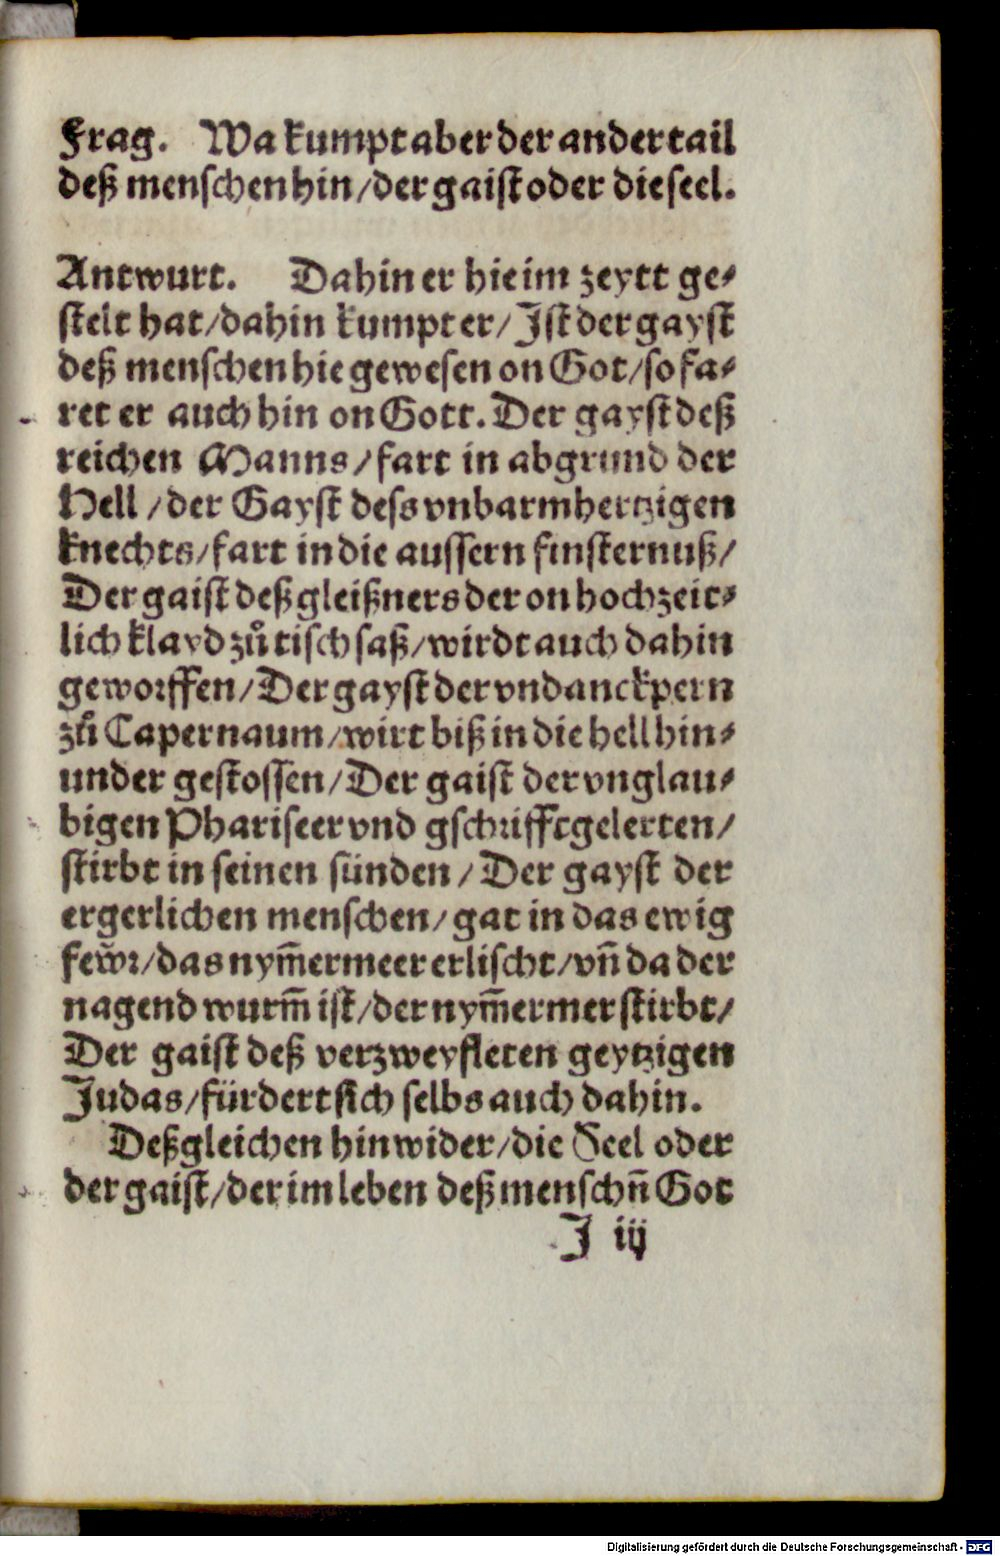 Frag. Wa kumpt aber der ander tail
deß menschen hin/der gaist oder die seel.
Antwurt. Dahin er hie im zeytt ge⸗
stelt hat/dahin kumpt er/Ist der gayst
deß menschen hie gewesen on Got/so fa⸗
ret er auch hin on Gott. Der gayst deß
reichen Manns/fart in abgrund der
Hell/der Gayst dess vnbarmhertzigen
knechts/fart in die aussern finsternuß/
Der gaist deß gleißners der on hochzeit⸗
lich klayd zuͦ tisch saß/wirdt auch dahin
geworffen/Der gayst der vndanckpern
zuͦ Capernaum/wirt biß in die hell hin⸗
under gestossen/Der gaist der vnglau⸗
bigen Phariseer vnd gschrifftgelerten/
stirbt in seinen sünden/Der gayst der
ergerlichen menschen/gat in das ewig
fewͤr/das nym̄ermeer erlischt/vn̄ da der
nagend wurm̄ ist/der nym̄ermer stirbt/
Der gaist deß verzweyfleten geytzigen
Judas/fürdert sich selbs auch dahin.
Deßgleichen hinwider/die Seel oder
der gaist/der im leben deß menschn̄ Got
J iij
Digitalisierung gefördert durch die Deutsche Forschungsgemeinschaft - DFG